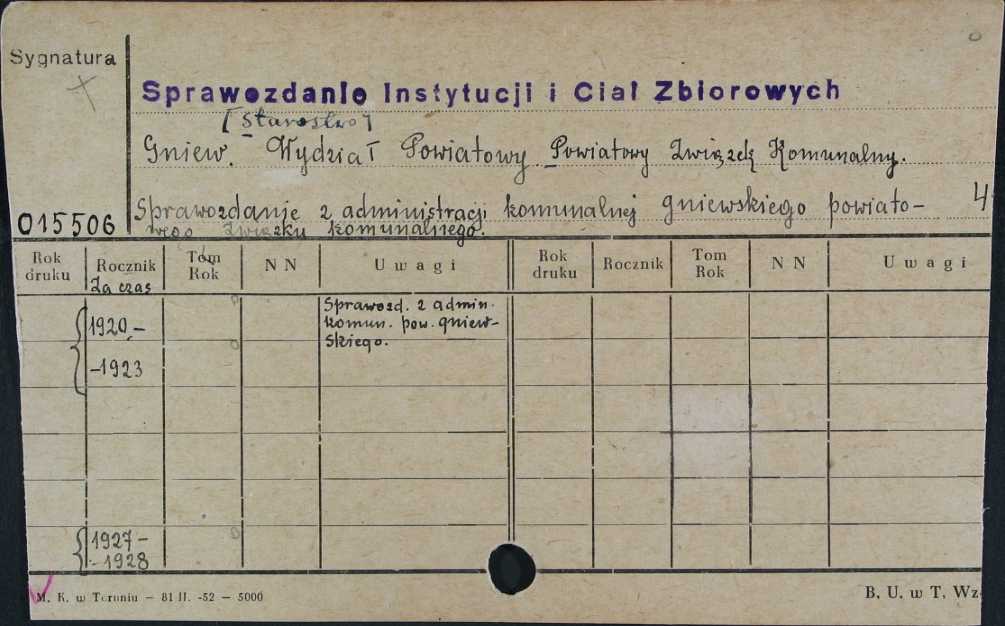 Sygnatura
Sprawozdanie Instytucji i Ciał Zbiorowych
[Starostwo]
Gniew. Wydział Powiatowy Powiatowy Związek Komunalny.
015506
Sprawozdanie z administracji komunalnej gniewskiego powiato- 4
wego związku komunalnego.
Rok druku Rocznik Tom Rok N N Uwagi Rok druku Rocznik Tom Rok N N Uwagi
Za czas
1920,- Sprawozd. z admin.
komun. pow. gniew-
-1923 skiego.
1927-
-1928
M. K. w Toruniu — 81 II. -52 — 5000 B. U. w T. Wz